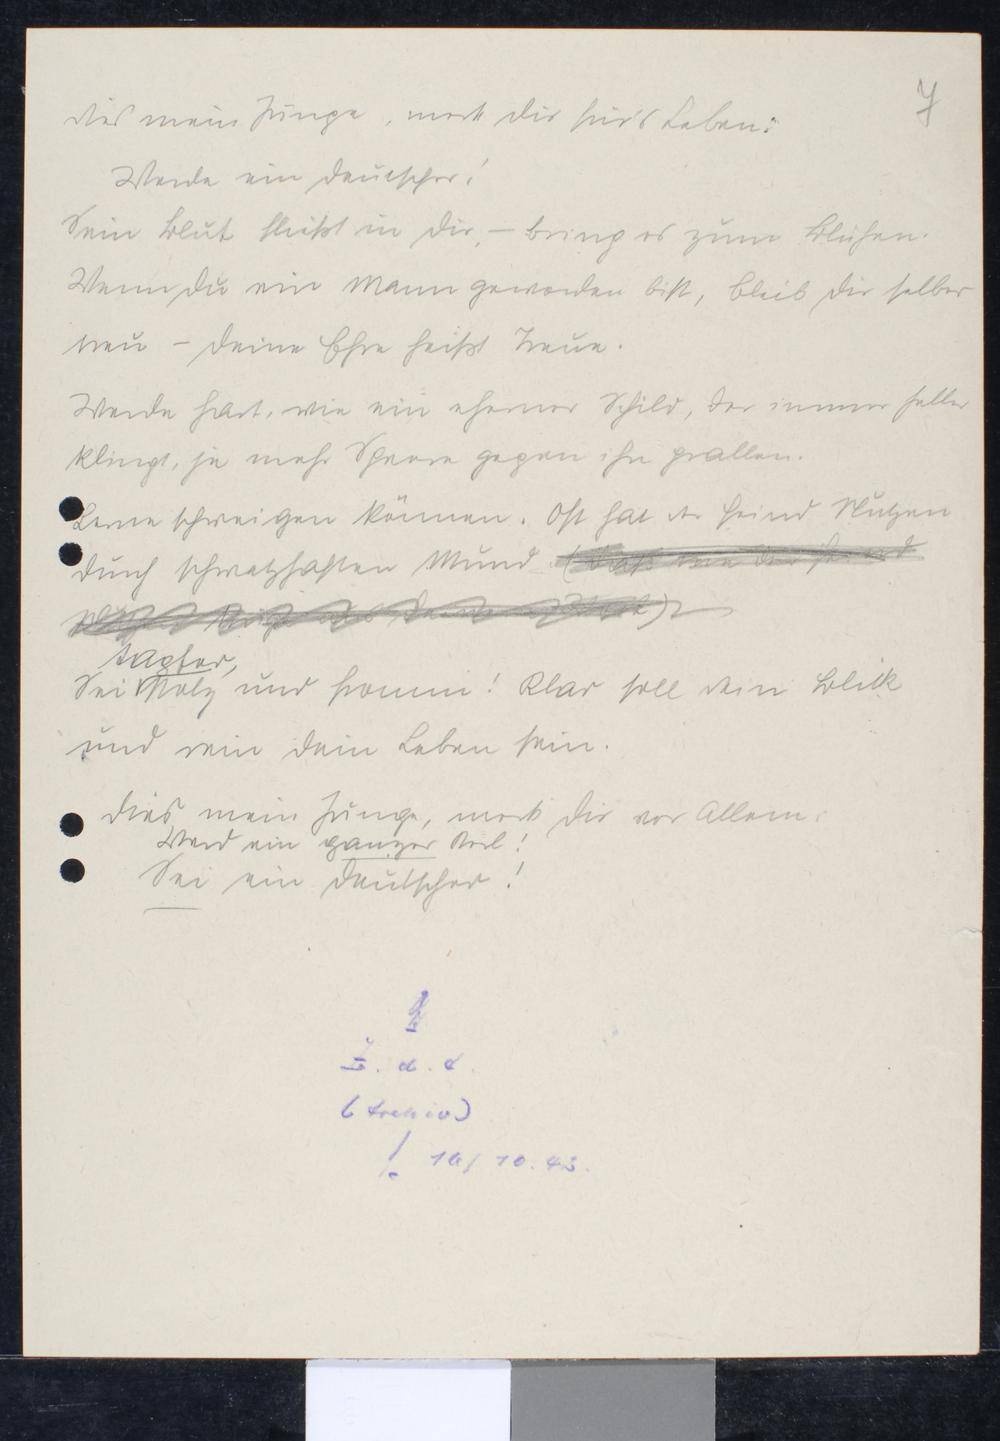 7
Dies mein Junge, merk dir für's Leben:
Werde ein Deutscher!
Sein Blut fließt in dir, – bring es zum Blühen.
Wenn du ein Mann geworden bist, bleib dir selber
treu – deine Ehre heißt Treue.
Werde hart, wie ein eherner Schild, der immer heller
klingt, je mehr Speere gegen ihn prallen.
Lerne schweigen können. Oft hat der Feind Nutzen
durch schwatzhaften Mund.
tapfer,
Sei stolz und fromm! Klar soll dein Blick
und rein dein Leben sein.
Dies mein Junge, merk dir vor Allem:
Werd ein ganzer Kerl!
Sei ein Deutscher!
Z. d. A.
(Archiv)
! 10. 43.